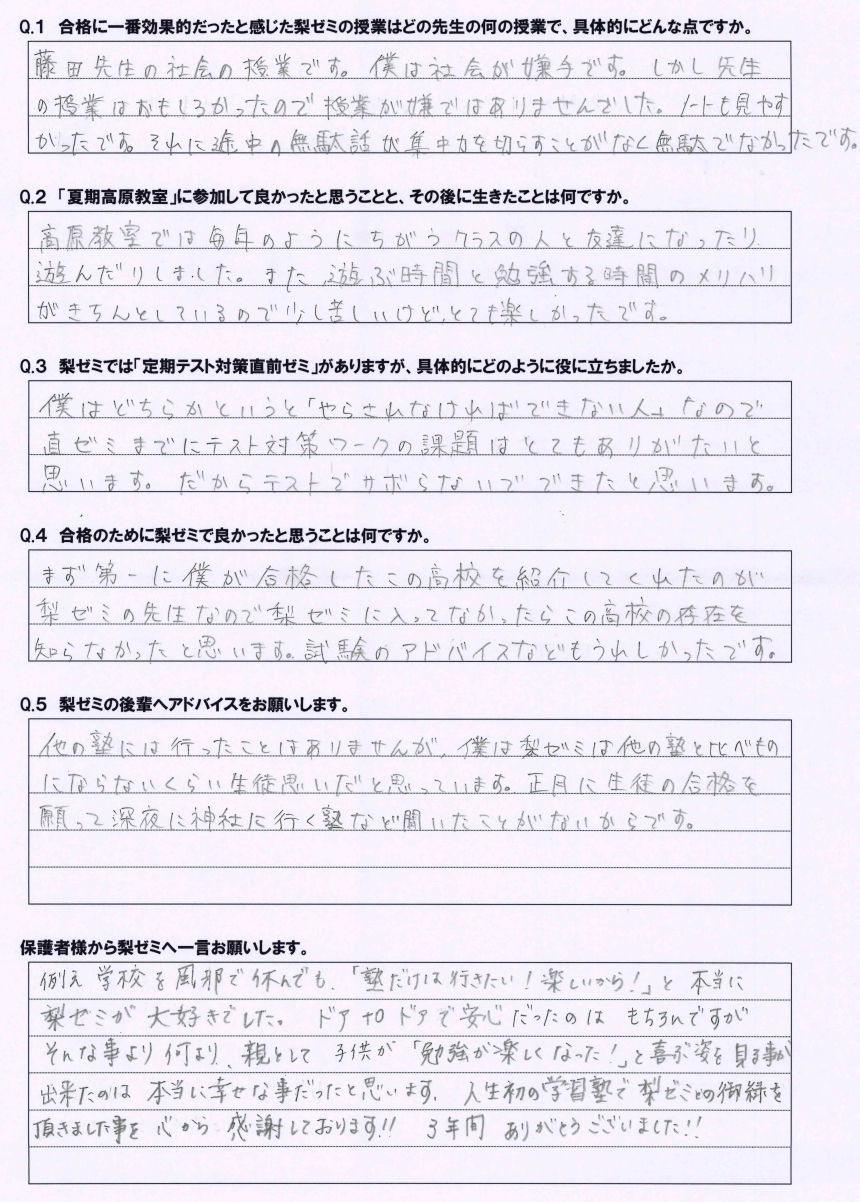 Q.1 合格に一番効果的だったと感じた梨ゼミの授業はどの先生の何の授業で、具体的にどんな点ですか。
藤田先生の社会の授業です。僕は社会が嫌手です。しかし先生
の授業はおもしろかったので授業が嫌ではありませんでした。ノートも見やす
かったです。それに途中の無駄話が集中力を切らすことがなく無駄でなかったです。
Q.2 「夏期高原教室」に参加して良かったと思うことと、その後に生きたことは何ですか。
高原教室では毎年のようにちがうクラスの人と友達になったり
遊んだりしました。また、遊ぶ時間と勉強する時間のメリハリ
がきちんとしているので少し苦しいけど、とても楽しかったです。
Q.3 梨ゼミでは「定期テスト対策直前ゼミ」がありますが、具体的にどのように役に立ちましたか。
僕はどちらかというと「やらされなければできない人」なので
直ゼミまでにテスト対策ワークの課題はとてもありがたいと
思います。だからテストでサボらないでできたと思います。
Q.4 合格のために梨ゼミで良かったと思うことは何ですか。
まず第一に僕が合格したこの高校を紹介してくれたのが
梨ゼミの先生なので梨ゼミに入ってなかったらこの高校の存在を
知らなかったと思います。試験のアドバイスなどもうれしかったです。
Q.5 梨ゼミの後輩へアドバイスをお願いします。
他の塾には行ったことはありませんが、僕は梨ゼミは他の塾と比べもの
にならないくらい生徒思いだと思っています。正月に生徒の合格を
願って深夜に神社に行く塾など聞いたことがないからです。
保護者様から梨ゼミへ一言お願いします。
例え学校を風邪で休んでも、「塾だけは行きたい!楽しいから!」と本当に
梨ゼミが大好きでした。ドアtoドアで安心だったのはもちろんですが
そんな事より何より、親として子供が「勉強が楽しくなった!」と喜ぶ姿を見る事が
出来たのは本当に幸せな事だったと思います。人生初の学習塾で梨ゼミとの御縁を
頂きました事を心から感謝しております!! 3年間ありがとうございました!!